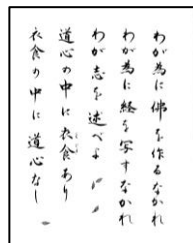 わが為に佛を作るなかれ
わが為に経を写すなかれ
わが志を述べよ
道心の中に衣食あり
衣食の中に道心なし